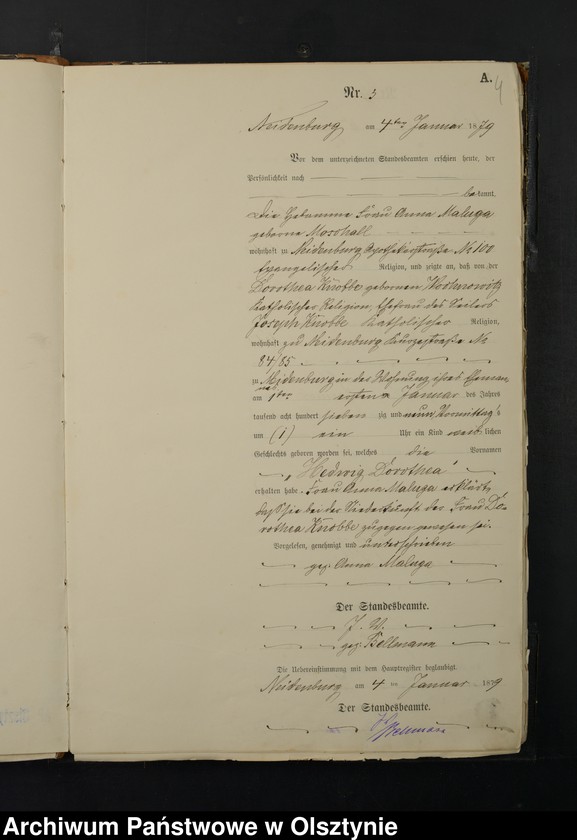 A.
4
Nr. 3
Neidenburg am 4ten Januar 1879
Vor dem unterzeichneten Standesbeamten erschien heute, der
Persönlichkeit nach
bekannt,
die Hebamme Frau Anna Maluga
geborne Moschall
wohnhaft zu Neidenburg Apothekerstraße No 100
Evangelischer Religion, und zeigte an, daß von der
Dorothea Knobbe gebornen
Katholischer Religion, Ehefrau des Seilers
Joseph Knobbe Katholischer Religion,
wohnhaft zu Neidenburg Kurzestraße No
84/85
zu Neidenburg in der Wohnung ihres Eheman,
am 1ten ersten Januar des Jahres
tausend acht hundert sieben zig und neun Vormittag's
um (1) ein Uhr ein Kind weiblichen
Geschlechts geboren worden sei, welches die Vornamen
„Hedwig Dorothea"
erhalten habe. Frau Anna Maluga erklärte,
daß sie bei der Niederkunft der Frau Do-
rothea Knobbe zugegen gewesen sei.
Vorgelesen, genehmigt und unterschrieben
gez. Anna Maluga
Der Standesbeamte.
J. V.
gez. Bellmann
Die Uebereinstimmung mit dem Hauptregister beglaubigt.
Neidenburg am 4 ten Januar 1879
Der Standesbeamte.
Archiwum Państwowe w Olsztynie